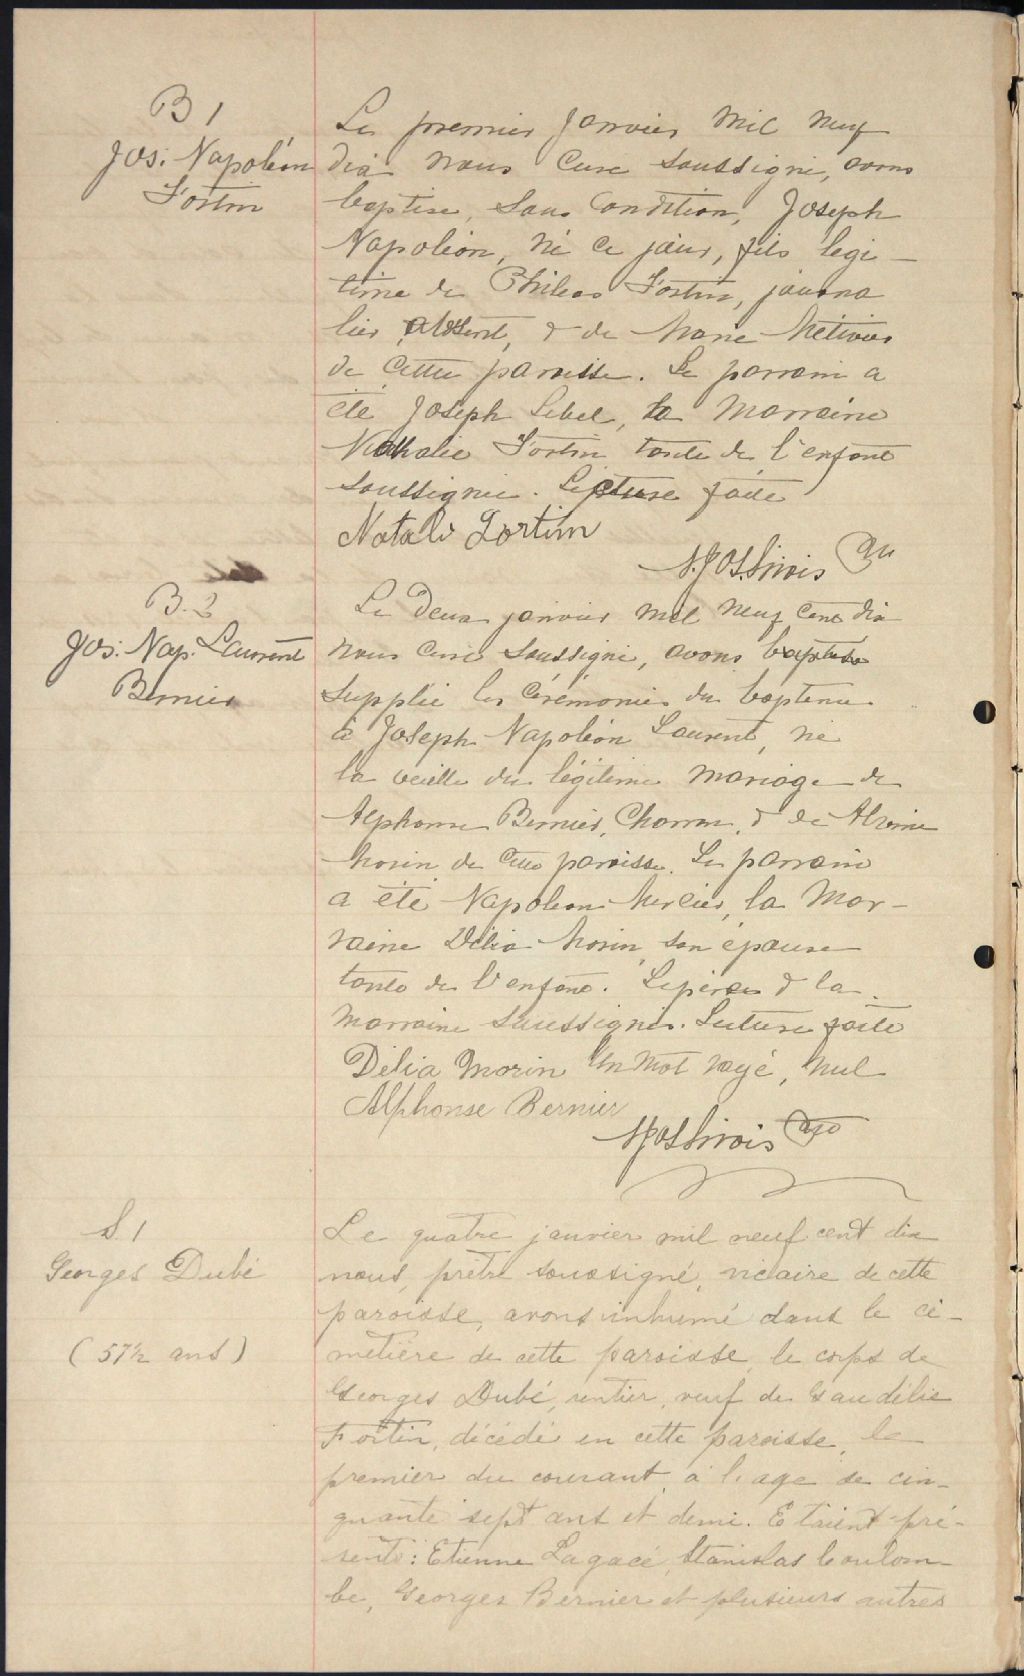 B 1
Jos. Napoléon
Fortin
Le premier janvier mil neuf
dix nous Curé soussigné, avons
baptisé, sans condition, Joseph
Napoléon, né ce jour, fils légi-
time de Philéas Fortin, journa
lier absent, & de Marie Métivier
de cette paroisse. Le parrain a
été Joseph Lebel, la marraine
Nathalie Fortin tante de l'enfant
soussignée. Lecture faite
Natali Fortin
N. Jos. Sirois Ptre
B. 2
Jos. Nap. Laurent
Bernier
Le deux janvier mil neuf cent dix
nous Curé soussigné, avons baptisé
supplié les cérémonies du baptême
à Joseph Napoléon Laurent, né
la veille du légitime mariage de
Alphonse Bernier, & de
Morin de cette paroisse. Le parrain
a été Napoléon Mercier, la mar-
raine Délia Morin son épouse
tante de l'enfant. Le père & la
marraine soussignés. Lecture faite
Délia Morin Un mot rayé, nul
Alphonse Bernier
N Jos Sirois Ptre
S 1
Georges Dubé
(57½ ans)
Le quatre janvier mil neuf cent dix
nous, prêtre soussigné, vicaire de cette
paroisse, avons inhumé dans le ci-
metière de cette paroisse, le corps de
Georges Dubé, rentier, veuf de Gaudélie
Fortin, décédé en cette paroisse, le
premier du courant, à l'age de cin-
quante sept ans et demi. Etaient pré-
sents: Etienne Lagacé, Stanislas Coulom-
be, Georges Bernier et plusieurs autres